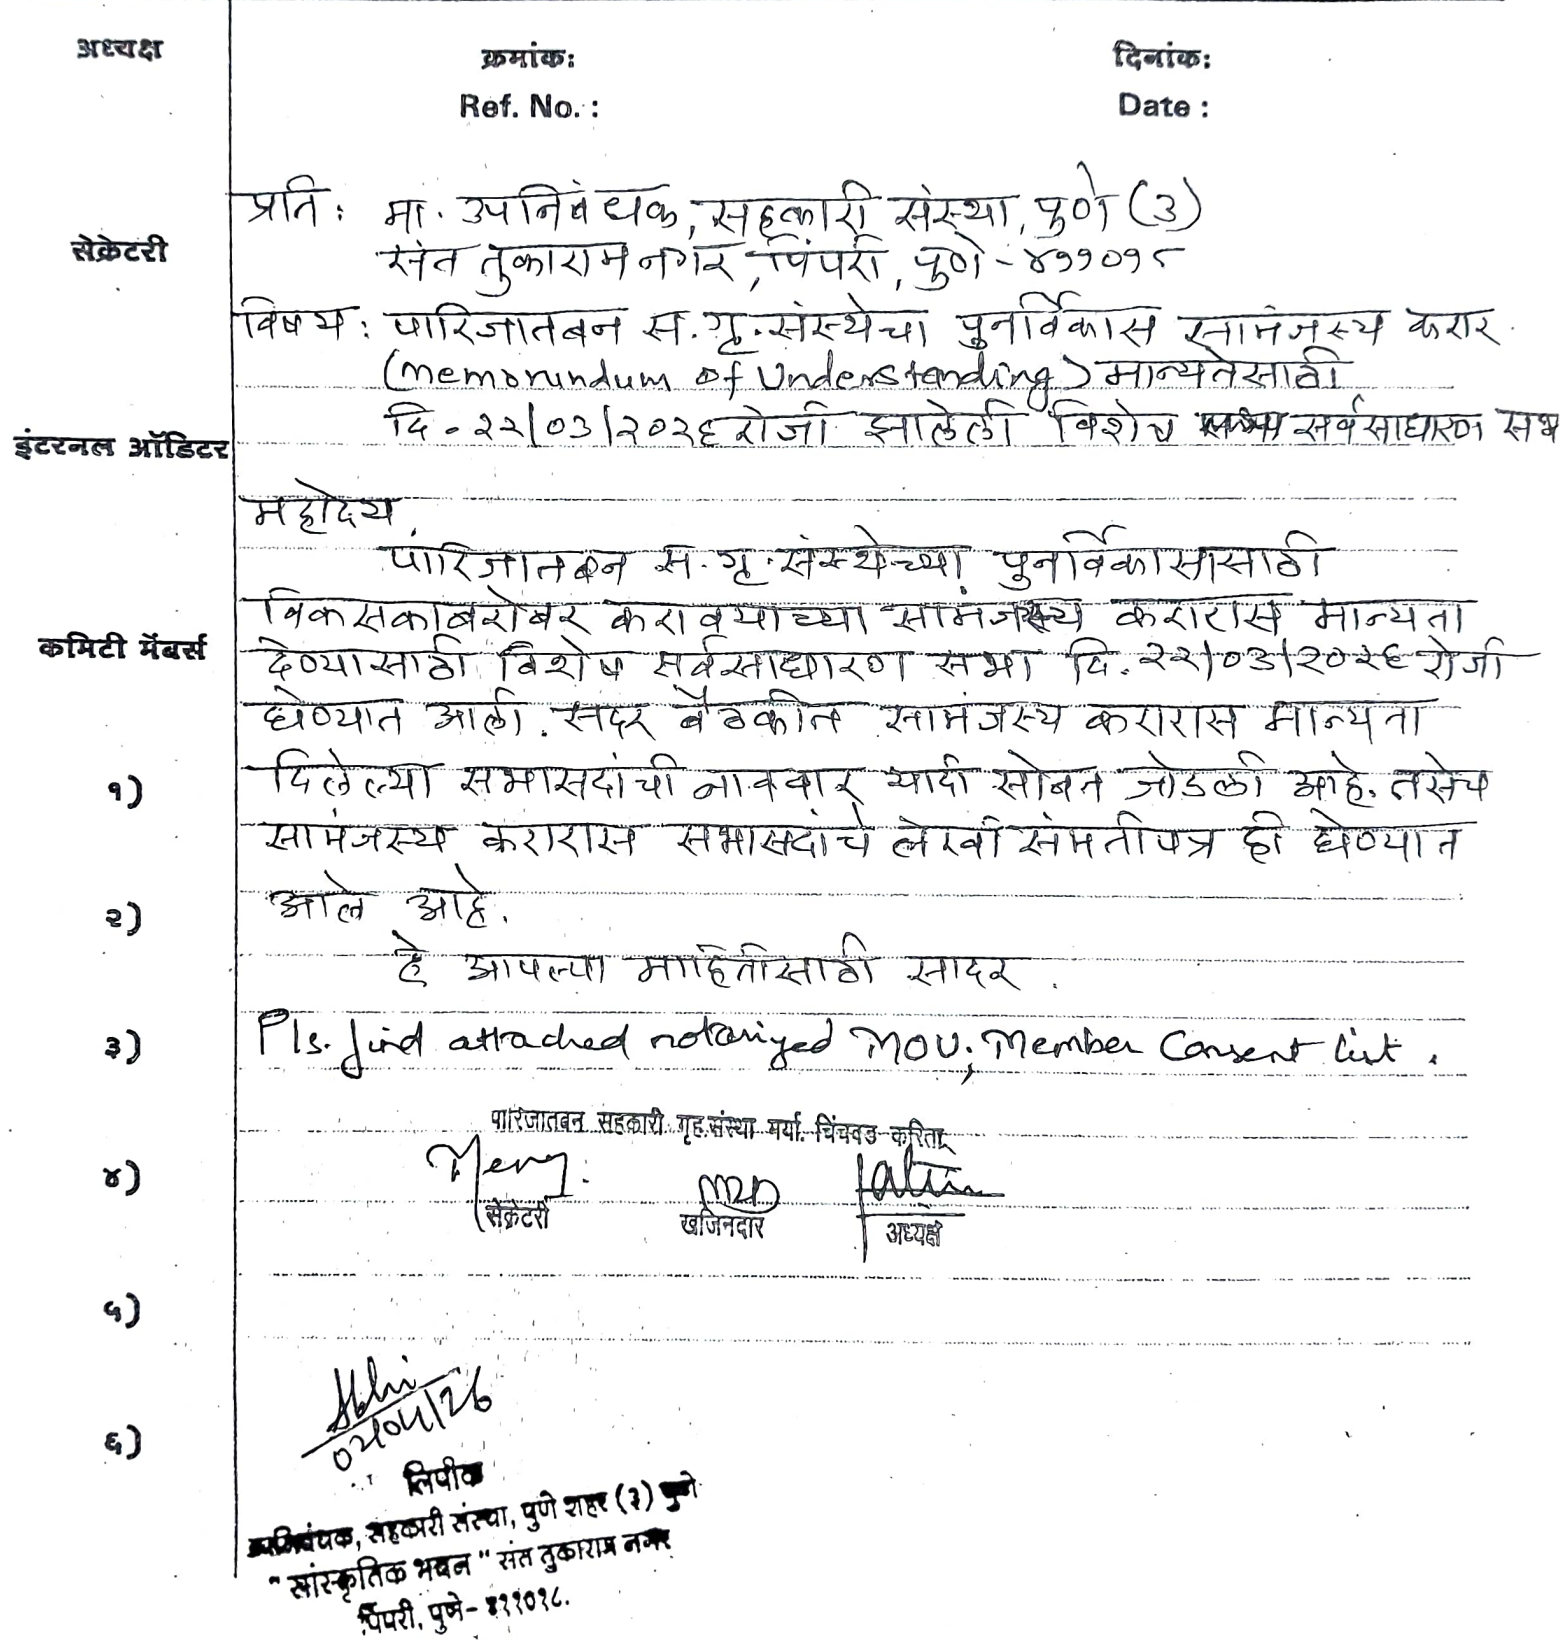 अध्यक्ष
क्रमांकः
दिनांकः
Ref. No. :
Date :
प्रति : मा. उपनिबंधक, सहकारी संस्था, पुणे (3)
सेक्रेटरी
संत तुकाराम नगर, पिंपरी, पुणे - ४११०१८
विषय : पारिजातबन स. गृ. संस्थेचा पुनर्विकास सामंजस्य करार
(memorundum of Understanding) मान्यतेसाठी
दि. २२/०३/२०२६ रोजी झालेली विशेष सर्वसाधारण सभ
इंटरनल ऑडिटर
महोदय
पारिजातबन स. गृ. संस्थेच्या पुनर्विकासासाठी
विकसकाबरोबर करावयाच्या सामंजस्य करारास मान्यता
कमिटी मेंबर्स
देण्यासाठी विशेष सर्वसाधारण सभा दि. २२/०३/२०२६ रोजी
घेण्यात आली. सदर बैठकीत सामंजस्य करारास मान्यता
१)
दिलेल्या सभासदांची नाववार यादी सोबत जोडली आहे. तसेच
सामंजस्य करारास सभासदांचे लेखी संमतीपत्र ही घेण्यात
२)
आले आहे.
हे आपल्या माहितीसाठी सादर .
३)
Pls. find attached notarized MOU, Member Consent list .
पारिजातबन सहकारी गृह.संस्था मर्या. चिंचवड करिता
४)
सेक्रेटरी खजिनदार अध्यक्ष
५)
६)
लिपीक
उपनिबंधक, सहकारी संस्था, पुणे शहर (३) पुणे
"सांस्कृतिक भवन" संत तुकाराम नगर
पिंपरी, पुणे- ४११०१८.